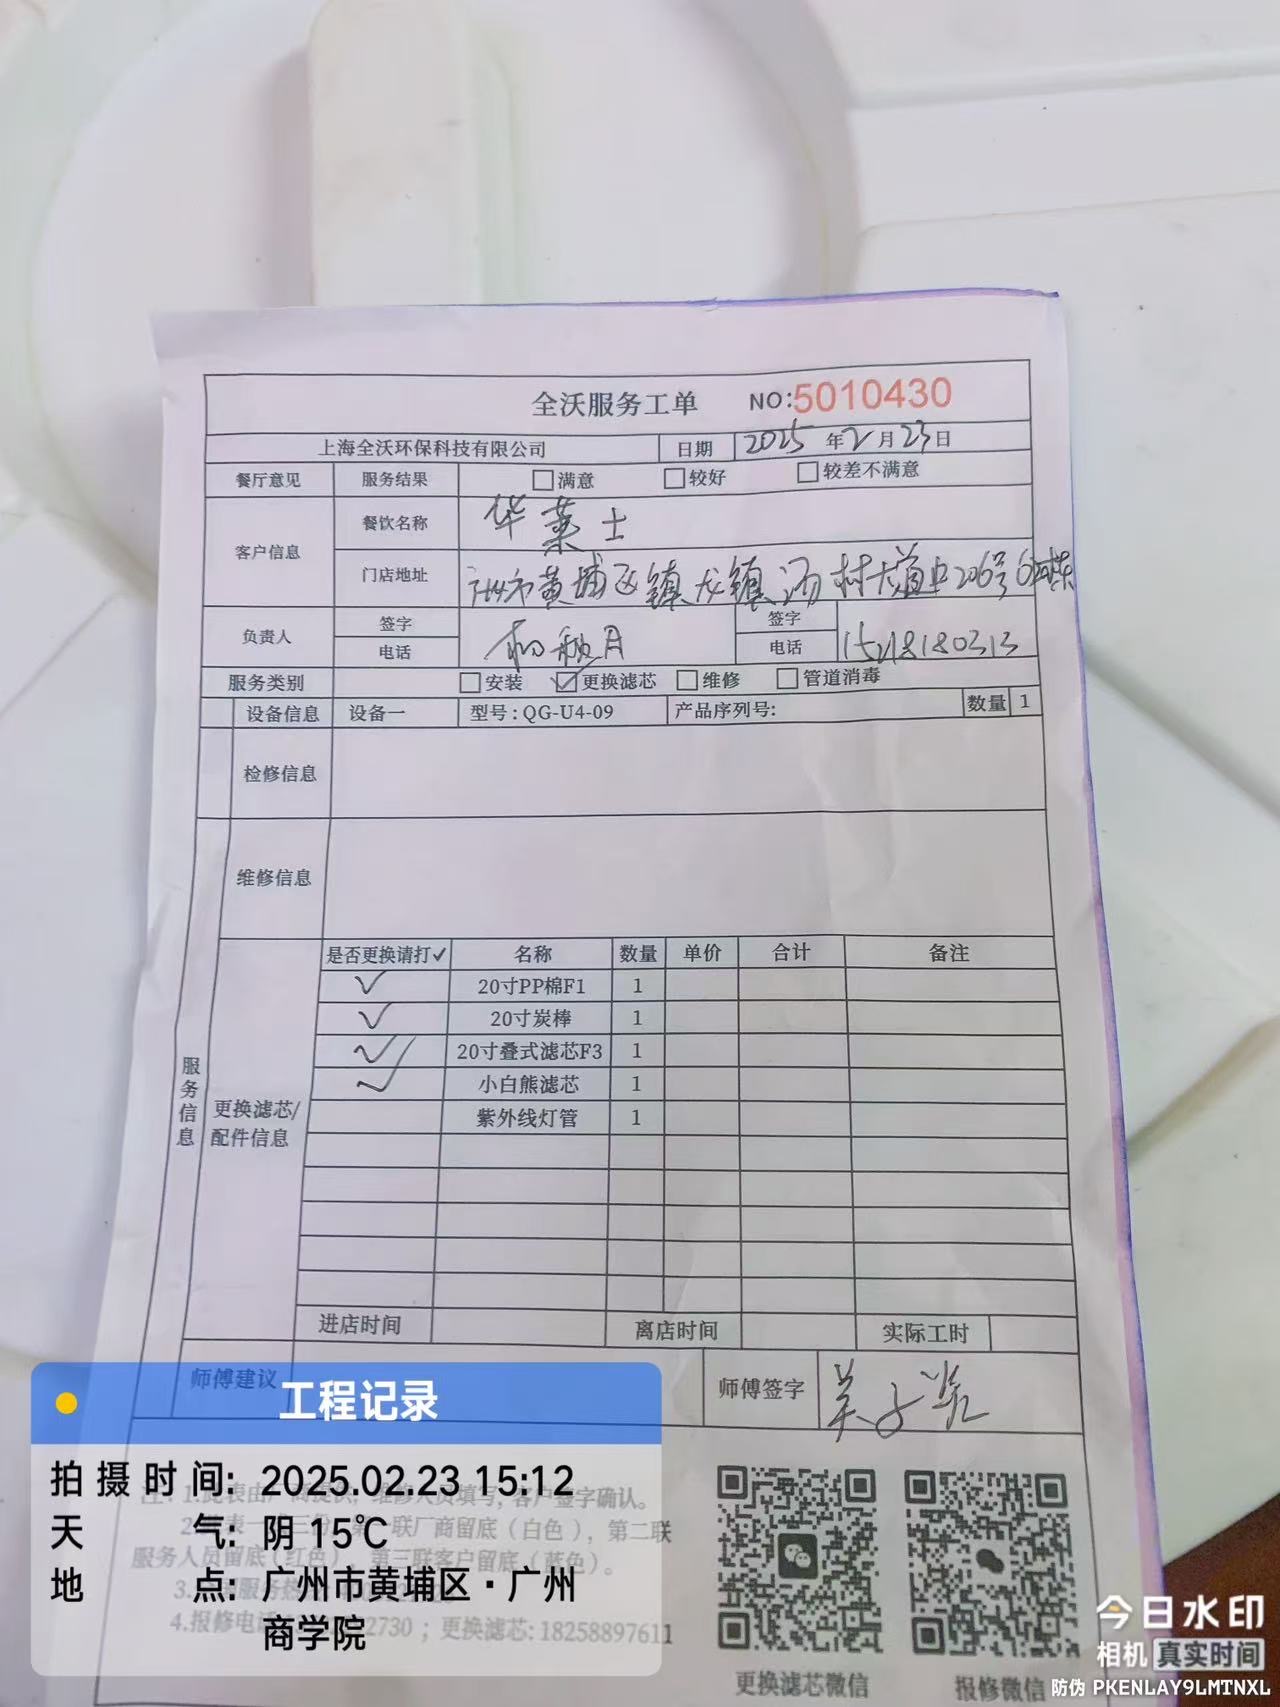 全沃服务工单 NO:5010430
上海全沃环保科技有限公司 日期 2025年2月23日
餐厅意见 服务结果 满意 较好 较差不满意
客户信息 餐饮名称 华莱士
门店地址 州市黄埔区镇龙镇汤村大道中206号
负责人 签字 秋月 签字
电话 电话 15218180313
服务类别 安装 ✓更换滤芯 维修 管道消毒
设备信息 设备一 型号:QG-U4-09 产品序列号: 数量 1
检修信息
维修信息
服务信息
更换滤芯/
配件信息
是否更换请打✓ 名称 数量 单价 合计 备注
✓ 20寸PP棉F1 1
✓ 20寸炭棒 1
✓ 20寸叠式滤芯F3 1
✓ 小白熊滤芯 1
紫外线灯管 1
进店时间 离店时间 实际工时
师傅建议 师傅签字
注:1.此表由厂商提供,维修人员填写,客户签字确认。
联厂商留底(白色),第二联
服务人员留底(红色),第三联客户留底(蓝色)。
4.报修电话 2730;更换滤芯:18258897611
更换滤芯微信 报修微信
工程记录
拍摄时间: 2025.02.23 15:12
天气: 阴 15℃
地点: 广州市黄埔区·广州
商学院
今日水印
相机 真实时间
防伪 PKENLAY9LMTNXL